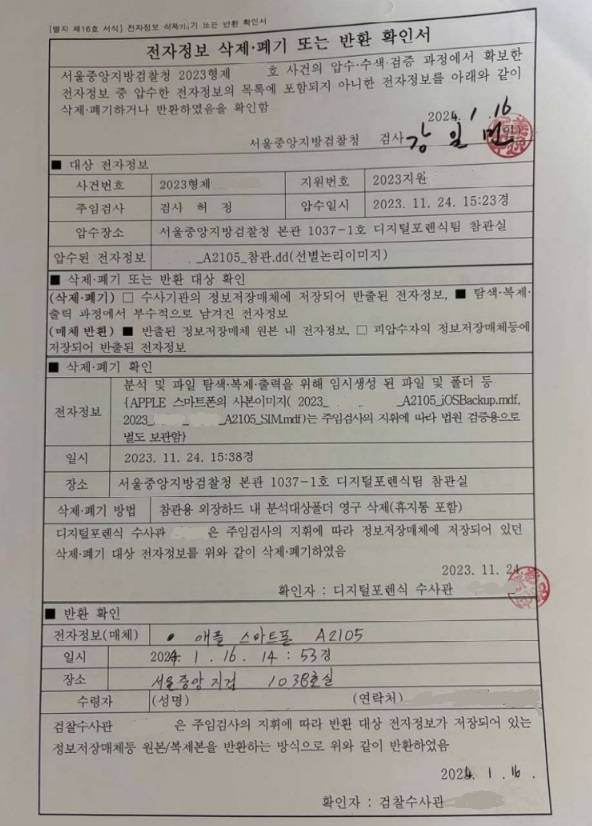 [별지 제16호 서식] 전자정보 삭제·폐기 또는 반환 확인서
전자정보 삭제·폐기 또는 반환 확인서
서울중앙지방검찰청 2023형제 호 사건의 압수·수색·검증 과정에서 확보한
전자정보 중 압수한 전자정보의 목록에 포함되지 아니한 전자정보를 아래와 같이
삭제·폐기하거나 반환하였음을 확인함
2024. 1. 16
서울중앙지방검찰청 검사 강일민 (인)
■ 대상 전자정보
사건번호 2023형제 지원번호 2023지원
주임검사 검사 허 정 압수일시 2023. 11. 24. 15:23경
압수장소 서울중앙지방검찰청 본관 1037-1호 디지털포렌식팀 참관실
압수된 전자정보 _A2105_참관.dd(선별논리이미지)
■ 삭제·폐기 또는 반환 대상 확인
(삭제·폐기) □ 수사기관의 정보저장매체에 저장되어 반출된 전자정보, ■ 탐색·복제·
출력 과정에서 부수적으로 남겨진 전자정보
(매체 반환) ■ 반출된 정보저장매체 원본 내 전자정보, □ 피압수자의 정보저장매체등에
저장되어 반출된 전자정보
■ 삭제·폐기 확인
전자정보
분석 및 파일 탐색·복제·출력을 위해 임시생성 된 파일 및 폴더 등
{APPLE 스마트폰의 사본이미지( 2023_ _A2105_iOSBackup.mdf,
2023_ _A2105_SIM.mdf)는 주임검사의 지휘에 따라 법원 검증용으로
별도 보관함}
일시 2023. 11. 24. 15:38경
장소 서울중앙지방검찰청 본관 1037-1호 디지털포렌식팀 참관실
삭제·폐기 방법 참관용 외장하드 내 분석대상폴더 영구 삭제(휴지통 포함)
디지털포렌식 수사관 은 주임검사의 지휘에 따라 정보저장매체에 저장되어 있던
삭제·폐기 대상 전자정보를 위와 같이 삭제·폐기하였음
2023. 11. 24.
확인자 : 디지털포렌식 수사관
■ 반환 확인
전자정보(매체) • 애플 스마트폰 A2105
일시 2024. 1. 16. 14 : 53경
장소 서울중앙지검 1038호실
수령자 (성명) (연락처)
검찰수사관 은 주임검사의 지휘에 따라 반환 대상 전자정보가 저장되어 있는
정보저장매체등 원본/복제본을 반환하는 방식으로 위와 같이 반환하였음
2024. 1. 16.
확인자 : 검찰수사관